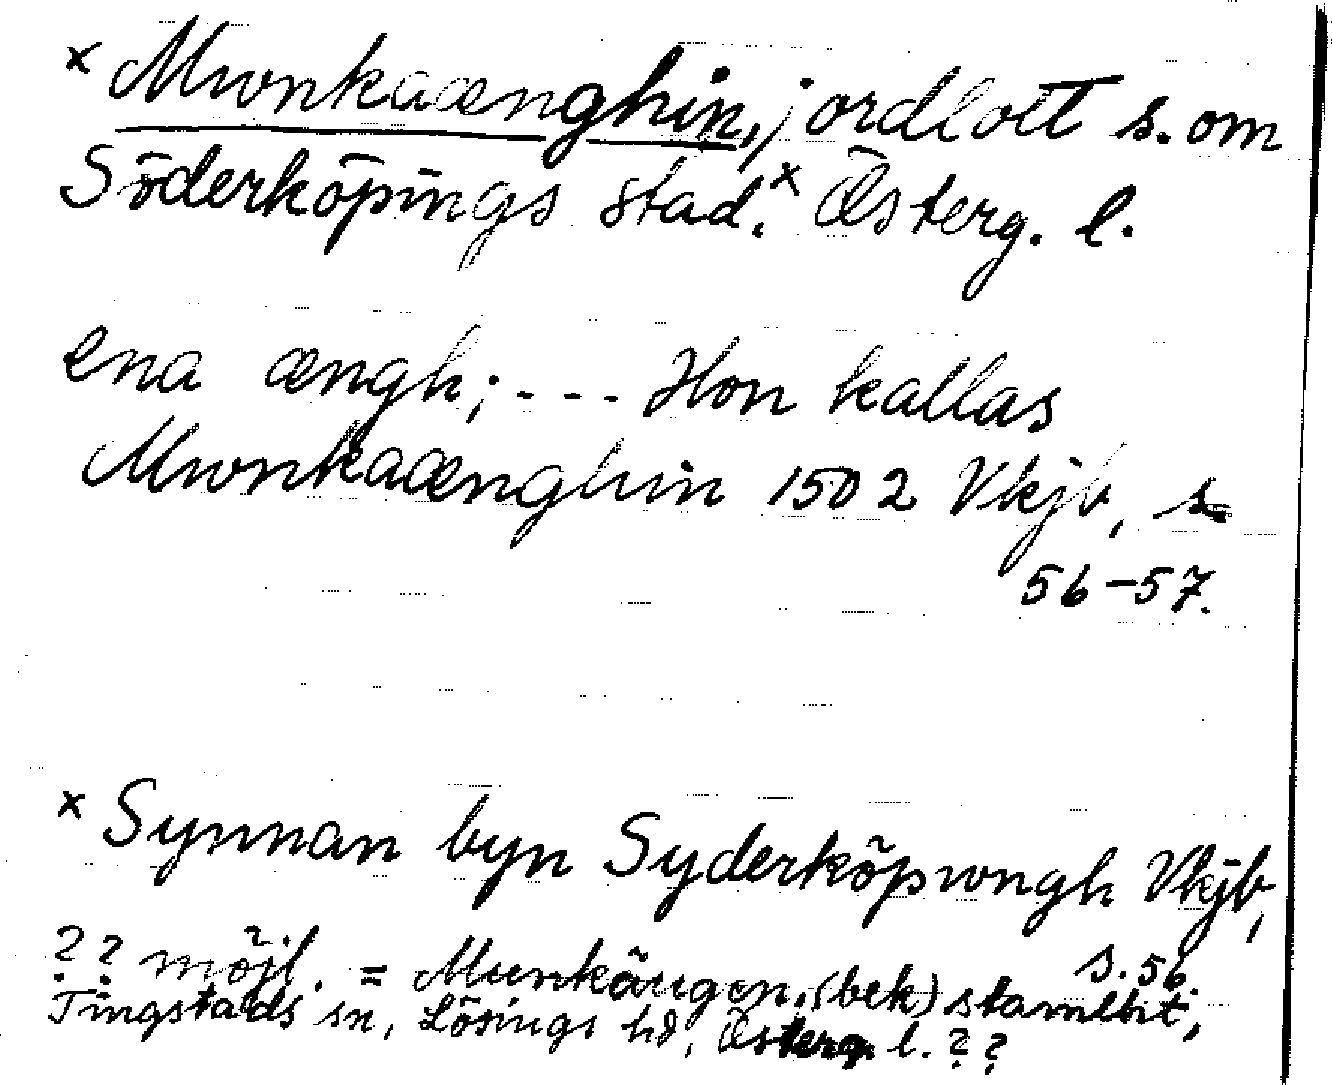 x Mwnkaænghin, jordlott s. om
Söderköpings stad. x Österg. l.
ena ængh; - - - Hon kallas
Mwnkaænghin 1502 Vkjb, s
56-57.
x Synnan byn Syderköpwngh Vkjb,
s. 56.
? ? möjl. = Munkängen, (bek)
Tingstads sn, Lösings hd, Österg. l. ? ?